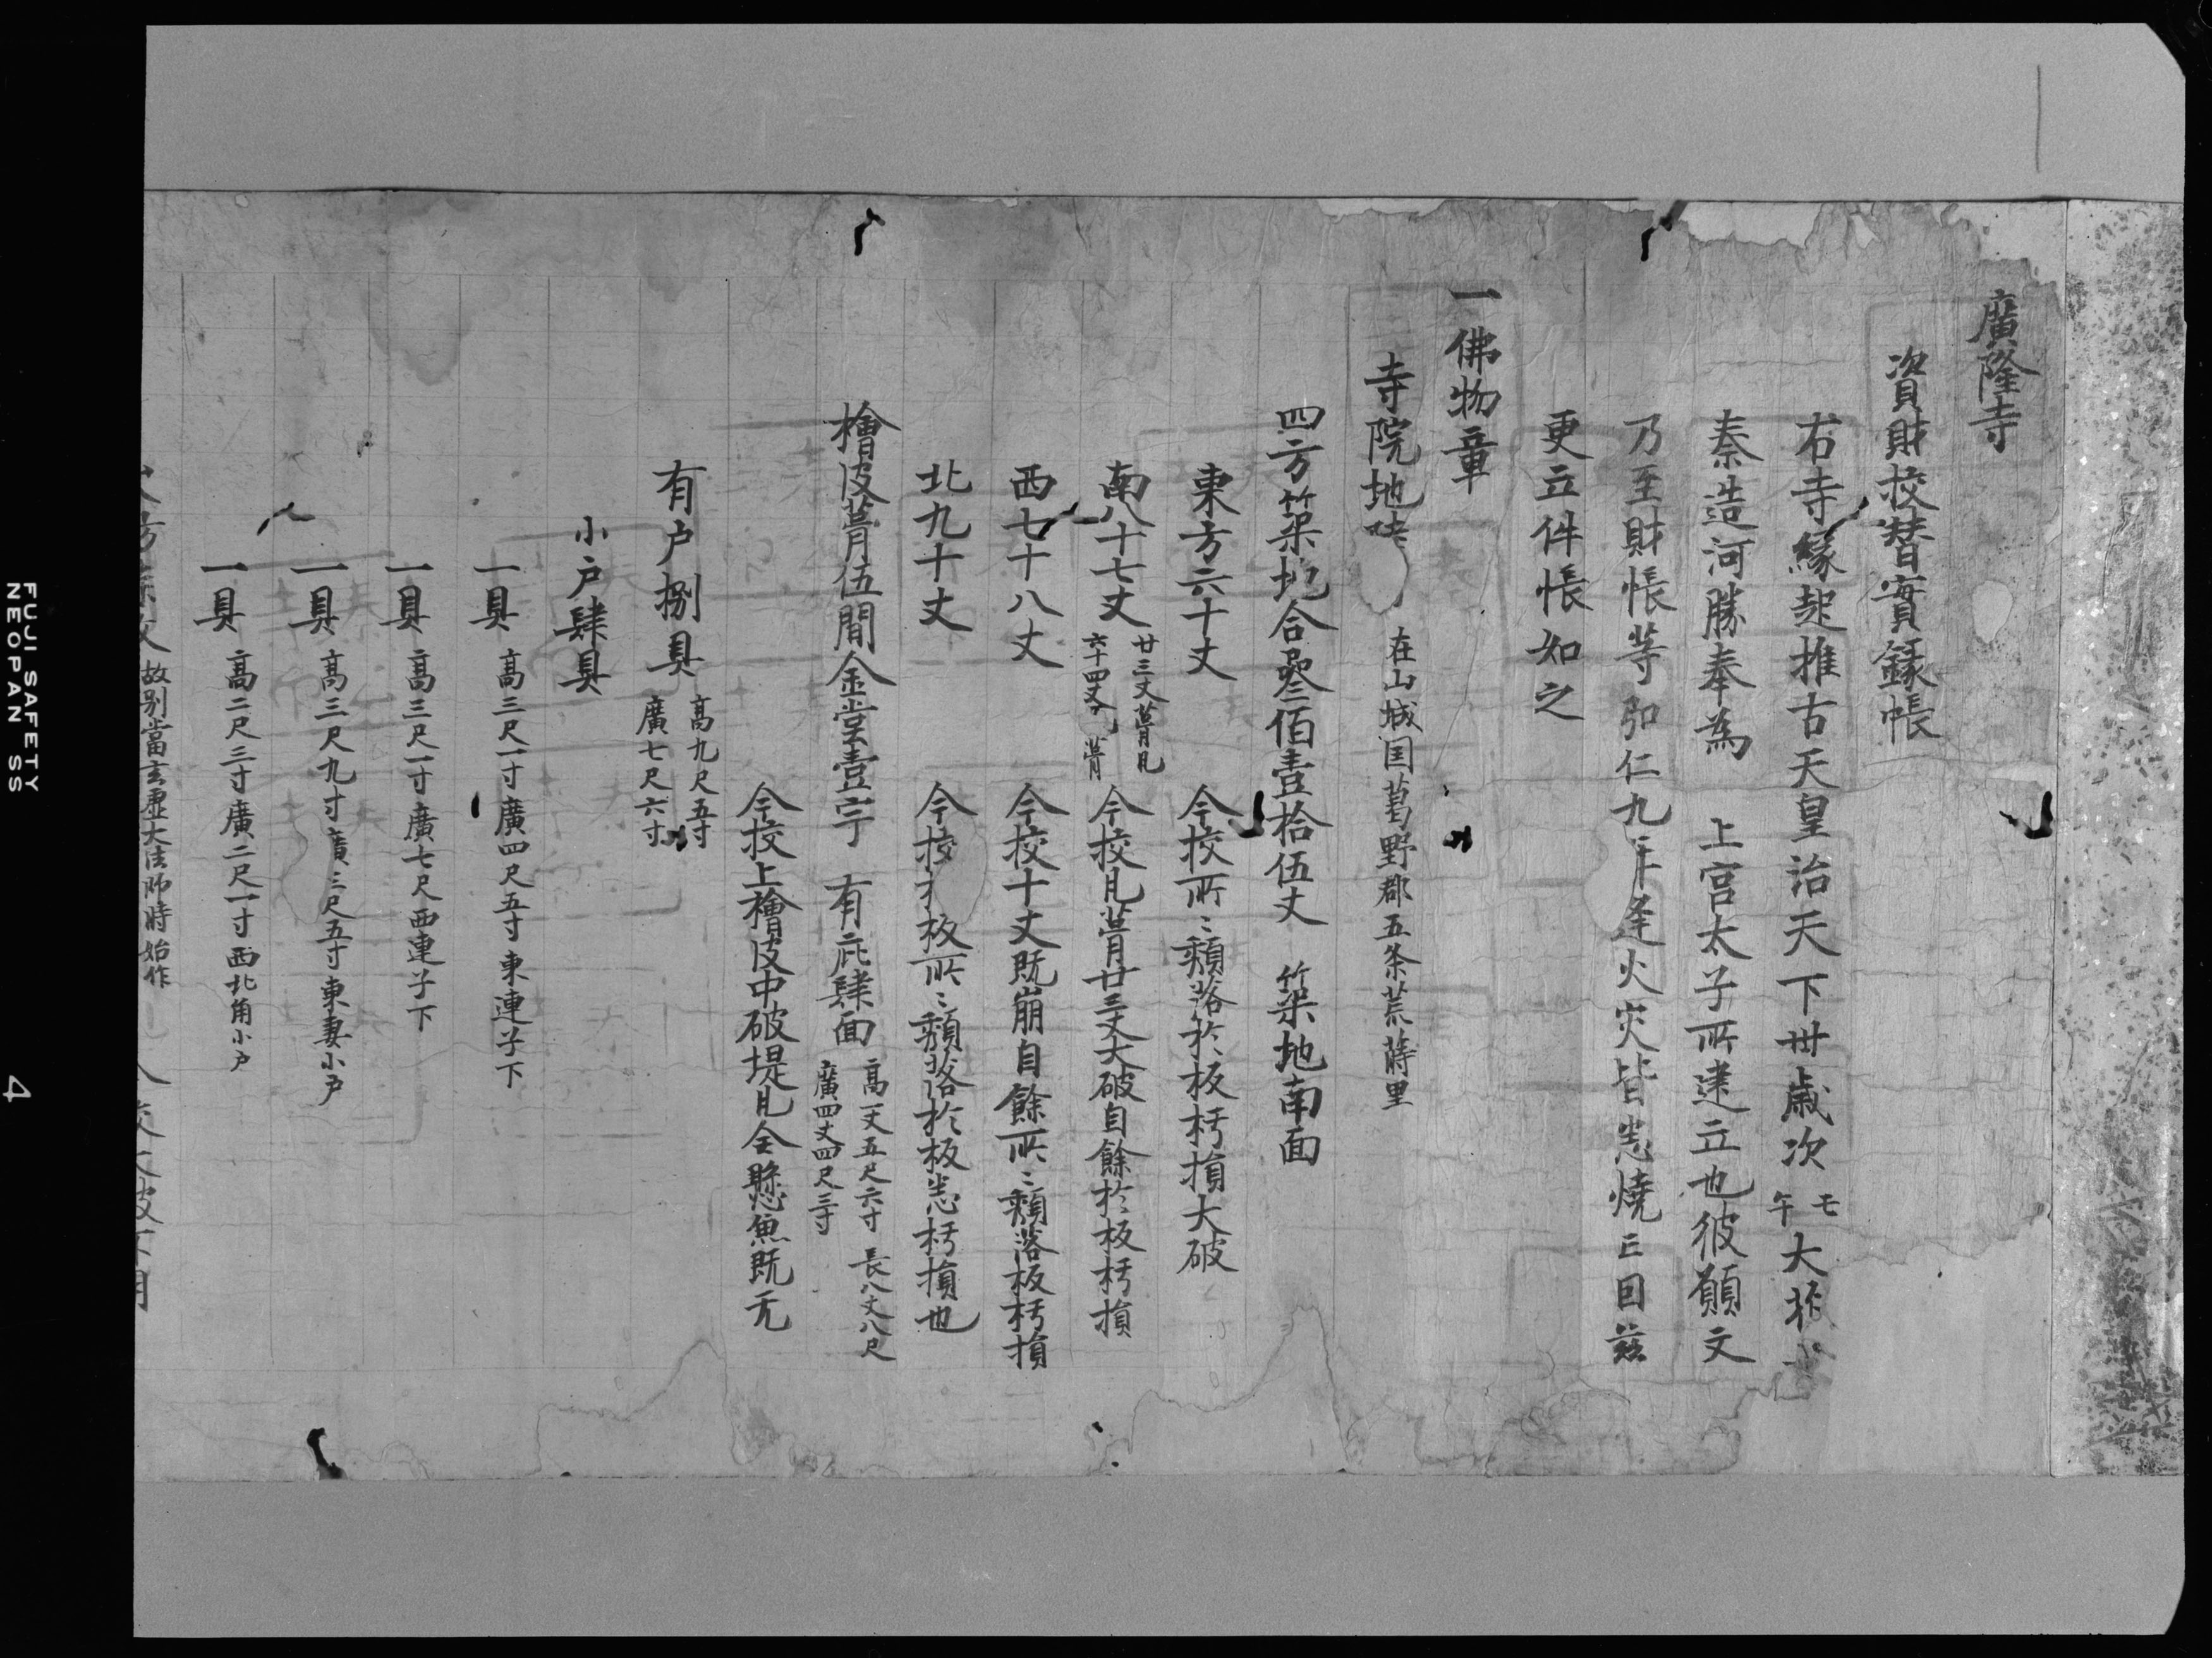 廣隆寺
資財校替實録帳
右寺縁起推古天皇治天下卅歳次壬午大
秦造河勝奉為 上宮太子所建立也彼願文
乃至財帳等弘仁九年逢火災皆悉燒亡因茲
更立件帳如之
一佛物章
寺院地 在山城国葛野郡五条荒蒔里
四方築地合參佰壹拾伍丈 築地南面
東方六十丈 今校所々頽落於板朽損大破
南八十七丈 廿三丈葺瓦 六十四丈 葺 今校瓦葺廿三丈大破自餘於板朽損
西七十八丈 今校十丈既崩自餘所々頽落板朽損
北九十丈 今校 板所々頽落於板悉朽損也
檜皮葺伍間金堂壹宇 有庇肆面 高一丈五尺六寸 長八丈八尺 廣四丈四尺三寸
今校上檜皮中破堤瓦全懸魚既无
有戸捌具 高九尺五寸 廣七尺六寸
小戸肆具
一具 高三尺一寸廣四尺五寸東連子下
一具 高三尺一寸廣七尺西連子下
一具 高三尺九寸廣三尺五寸東妻小戸
一具 高二尺三寸廣二尺一寸西北角小戸
故別當玄虚大法師時始作
FUJI SAFETY
NEOPAN SS
4